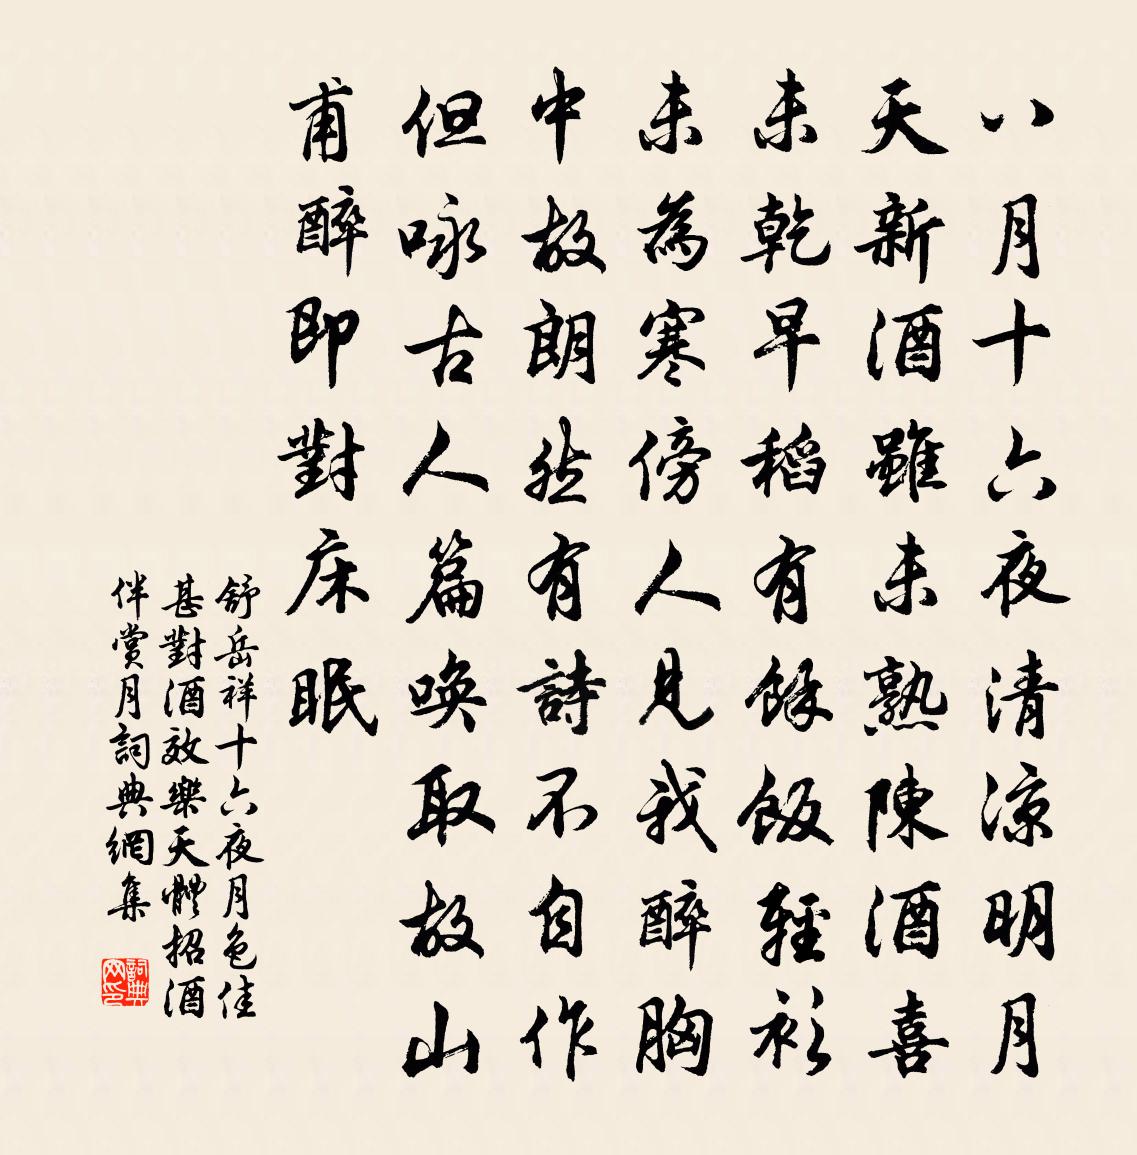 八月十六夜清涼明月
天新酒雖未熟陳酒喜
未乾早稻有餘飯輕衫
未為寒傍人見我醉胸
中故朗然有詩不自作
但咏古人篇喚取故山
甫醉即對床眠
舒岳祥十六夜月色佳
甚對酒效樂天體招酒
伴賞月詞典網集
詞典
網印